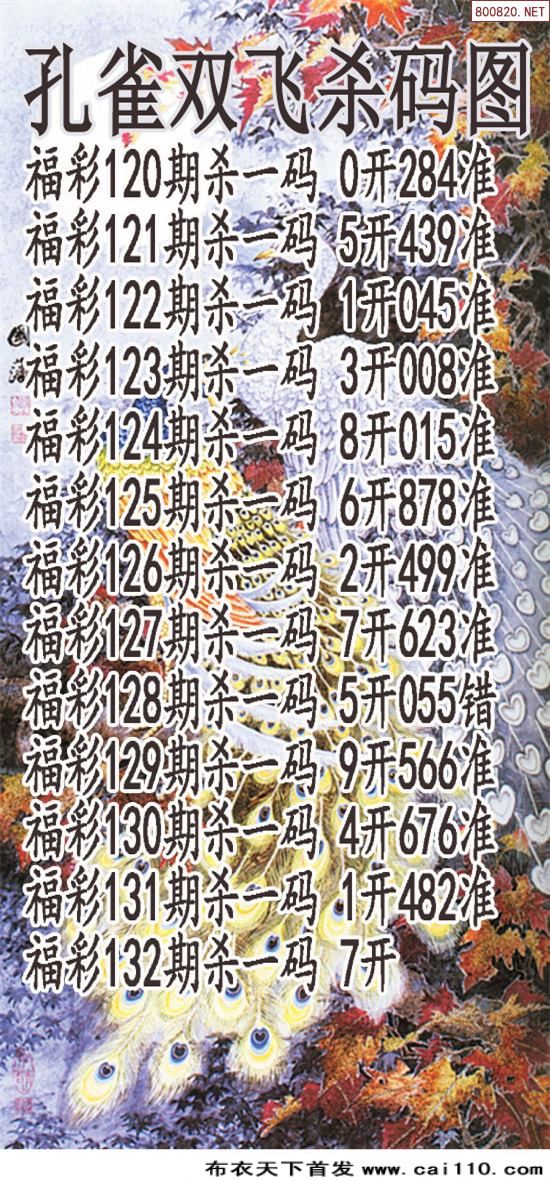 800820.NET
孔雀双飞杀码图
福彩120期杀一码 0开284准
福彩121期杀一码 5开439准
福彩122期杀一码 1开045准
福彩123期杀一码 3开008准
福彩124期杀一码 8开015准
福彩125期杀一码 6开878准
福彩126期杀一码 2开499准
福彩127期杀一码 7开623准
福彩128期杀一码 5开055错
福彩129期杀一码 9开566准
福彩130期杀一码 4开676准
福彩131期杀一码 1开482准
福彩132期杀一码 7开
布衣天下首发 www.cai110.com